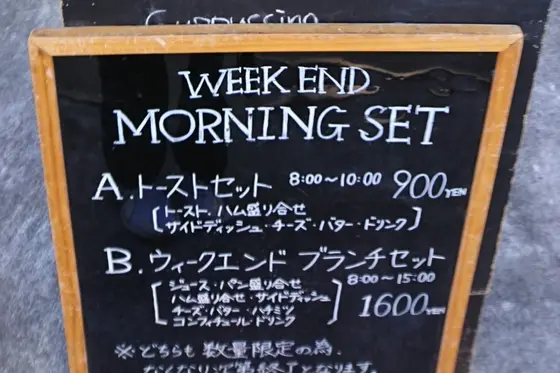 Cappuccino
WEEK END
MORNING SET
A.トーストセット 8:00～10:00 900YEN
[トースト.ハム盛り合せ
サイドディッシュ・チーズ・バター・ドリンク]
B.ウィークエンド ブランチセット
8:00～15:00
[ジュース・パン盛り合せ
ハム盛り合せ・サイドディッシュ
チーズ・バター・ハチミツ
コンフィチュール・ドリンク] 1600YEN
※どちらも数量限定の為、
なくなり次第終了となります。